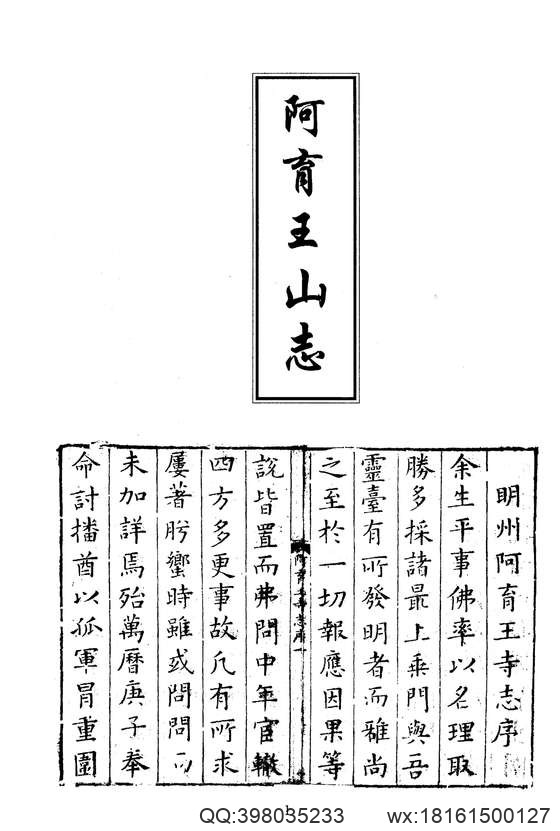 阿育王山志
明州阿育王寺志序
余生平事佛率以名理取
勝多採諸最上乘門與吾
靈臺有所發明者而雅尚
之至於一切報應因果等
阿育王寺志序 一
說皆置而弗問中年官轍
四方多更事故凡有所求
屢著肹蠁時雖或問問而
未加詳焉殆萬曆庚子奉
命討播酋以孤軍冒重圍
QQ:398035233 wx:18161500127